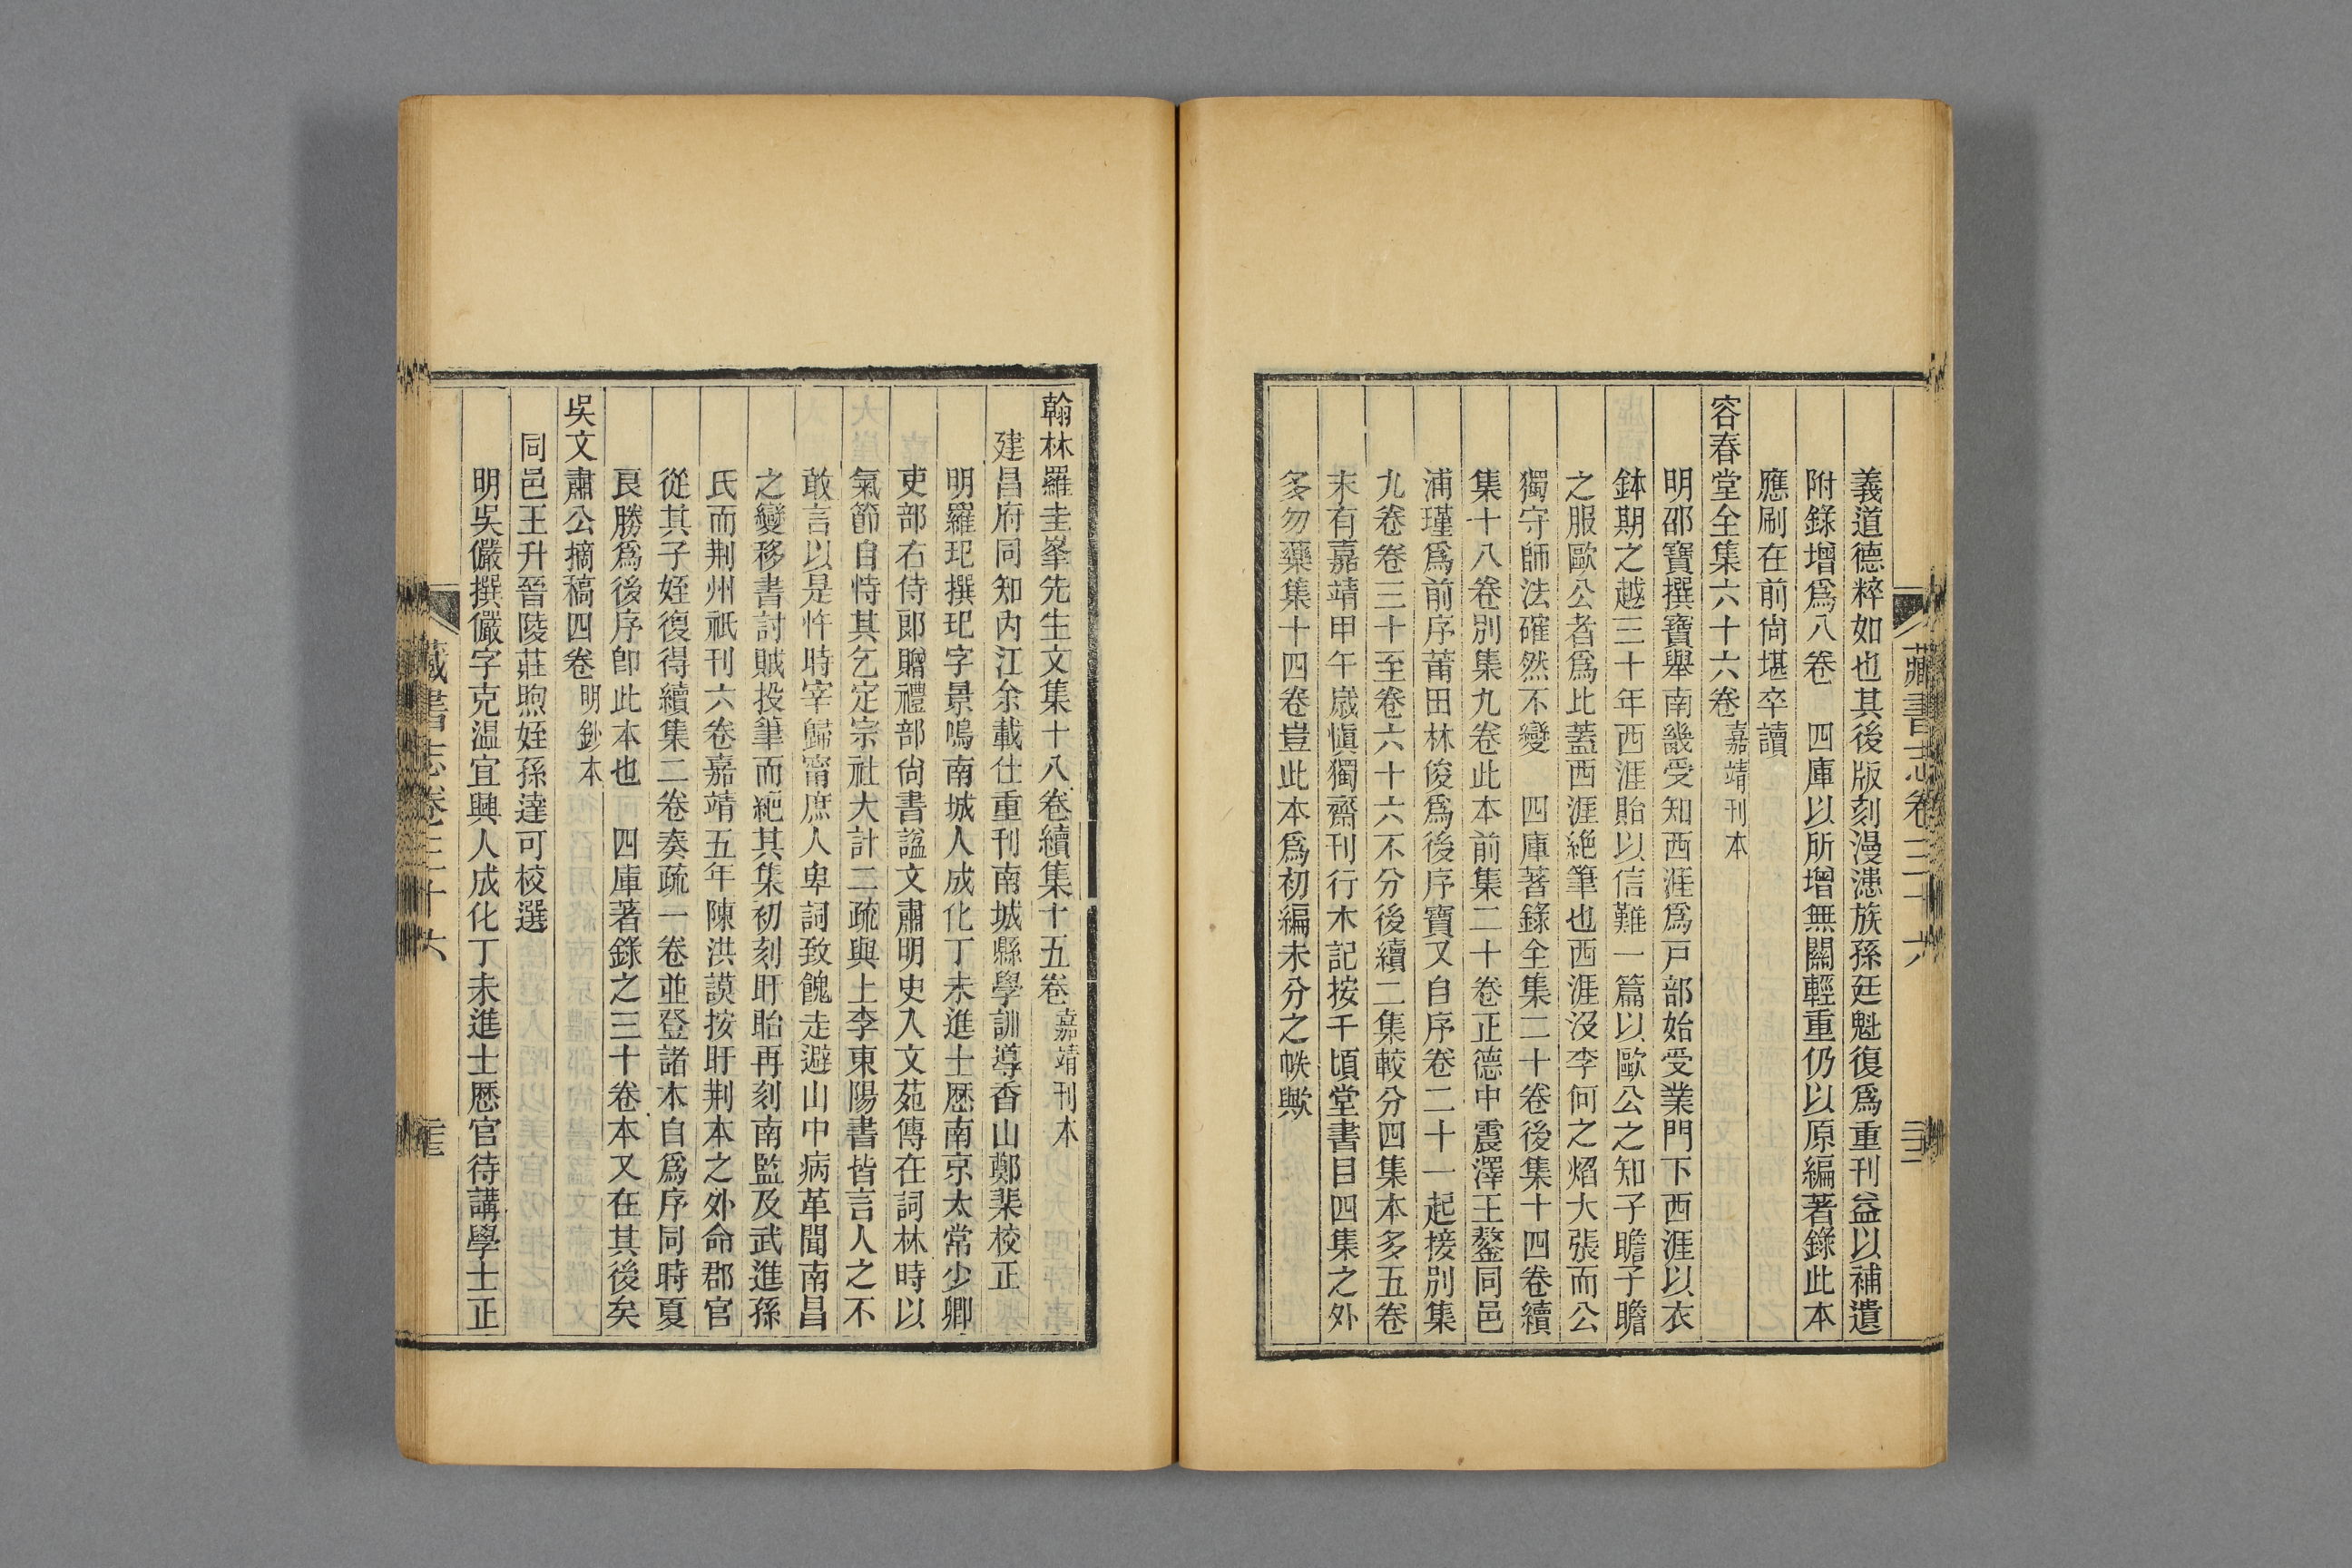 藏書志卷三十六
義道德粹如也其後版刻漫漶族孫廷魁復爲重刊益以補遺
附錄增爲八卷　四庫以所增無關輕重仍以原編著錄此本
應刷在前尙堪卒讀
容春堂全集六十六卷嘉靖刊本
明邵寶撰寶舉南畿受知西涯爲戸部始受業門下西涯以衣
鉢期之越三十年西涯貽以信難一篇以歐公之知子瞻子瞻
之服歐公者爲比蓋西涯絶筆也西涯沒李何之熖大張而公
獨守師法確然不變　四庫著錄全集二十卷後集十四卷續
集十八卷別集九卷此本前集二十卷正德中震澤王鏊同邑
浦瑾爲前序莆田林俊爲後序寶又自序卷二十一起接別集
九卷卷三十至卷六十六不分後續二集較分四集本多五卷
末有嘉靖甲午歳愼獨齋刊行木記按千頃堂書目四集之外
多勿藥集十四卷豈此本爲初編未分之帙歟
翰林羅圭峯先生文集十八卷續集十五卷嘉靖刊本
建昌府同知内江余載仕重刊南城縣學訓導香山鄭棐校正
明羅玘撰玘字景鳴南城人成化丁未進士歴南京太常少卿
吏部右侍郎贈禮部尙書諡文肅明史入文苑傳在詞林時以
氣節自恃其乞定宗社大計二疏與上李東陽書皆言人之不
敢言以是忤時宰歸甯庶人卑詞致餽走避山中病革聞南昌
之變移書討賊投筆而絕其集初刻盱眙再刻南監及武進孫
氏而荆州祇刊六卷嘉靖五年陳洪謨按盱荆本之外命郡官
從其子姪復得續集二卷奏疏一卷並登諸木自爲序同時夏
良勝爲後序卽此本也　四庫著錄之三十卷本又在其後矣
吳文肅公摘稿四卷明鈔本
同邑王升晉陵莊煦姪孫達可校選
明吳儼撰儼字克温宜興人成化丁未進士歴官侍講學士正
藏書志卷三十六